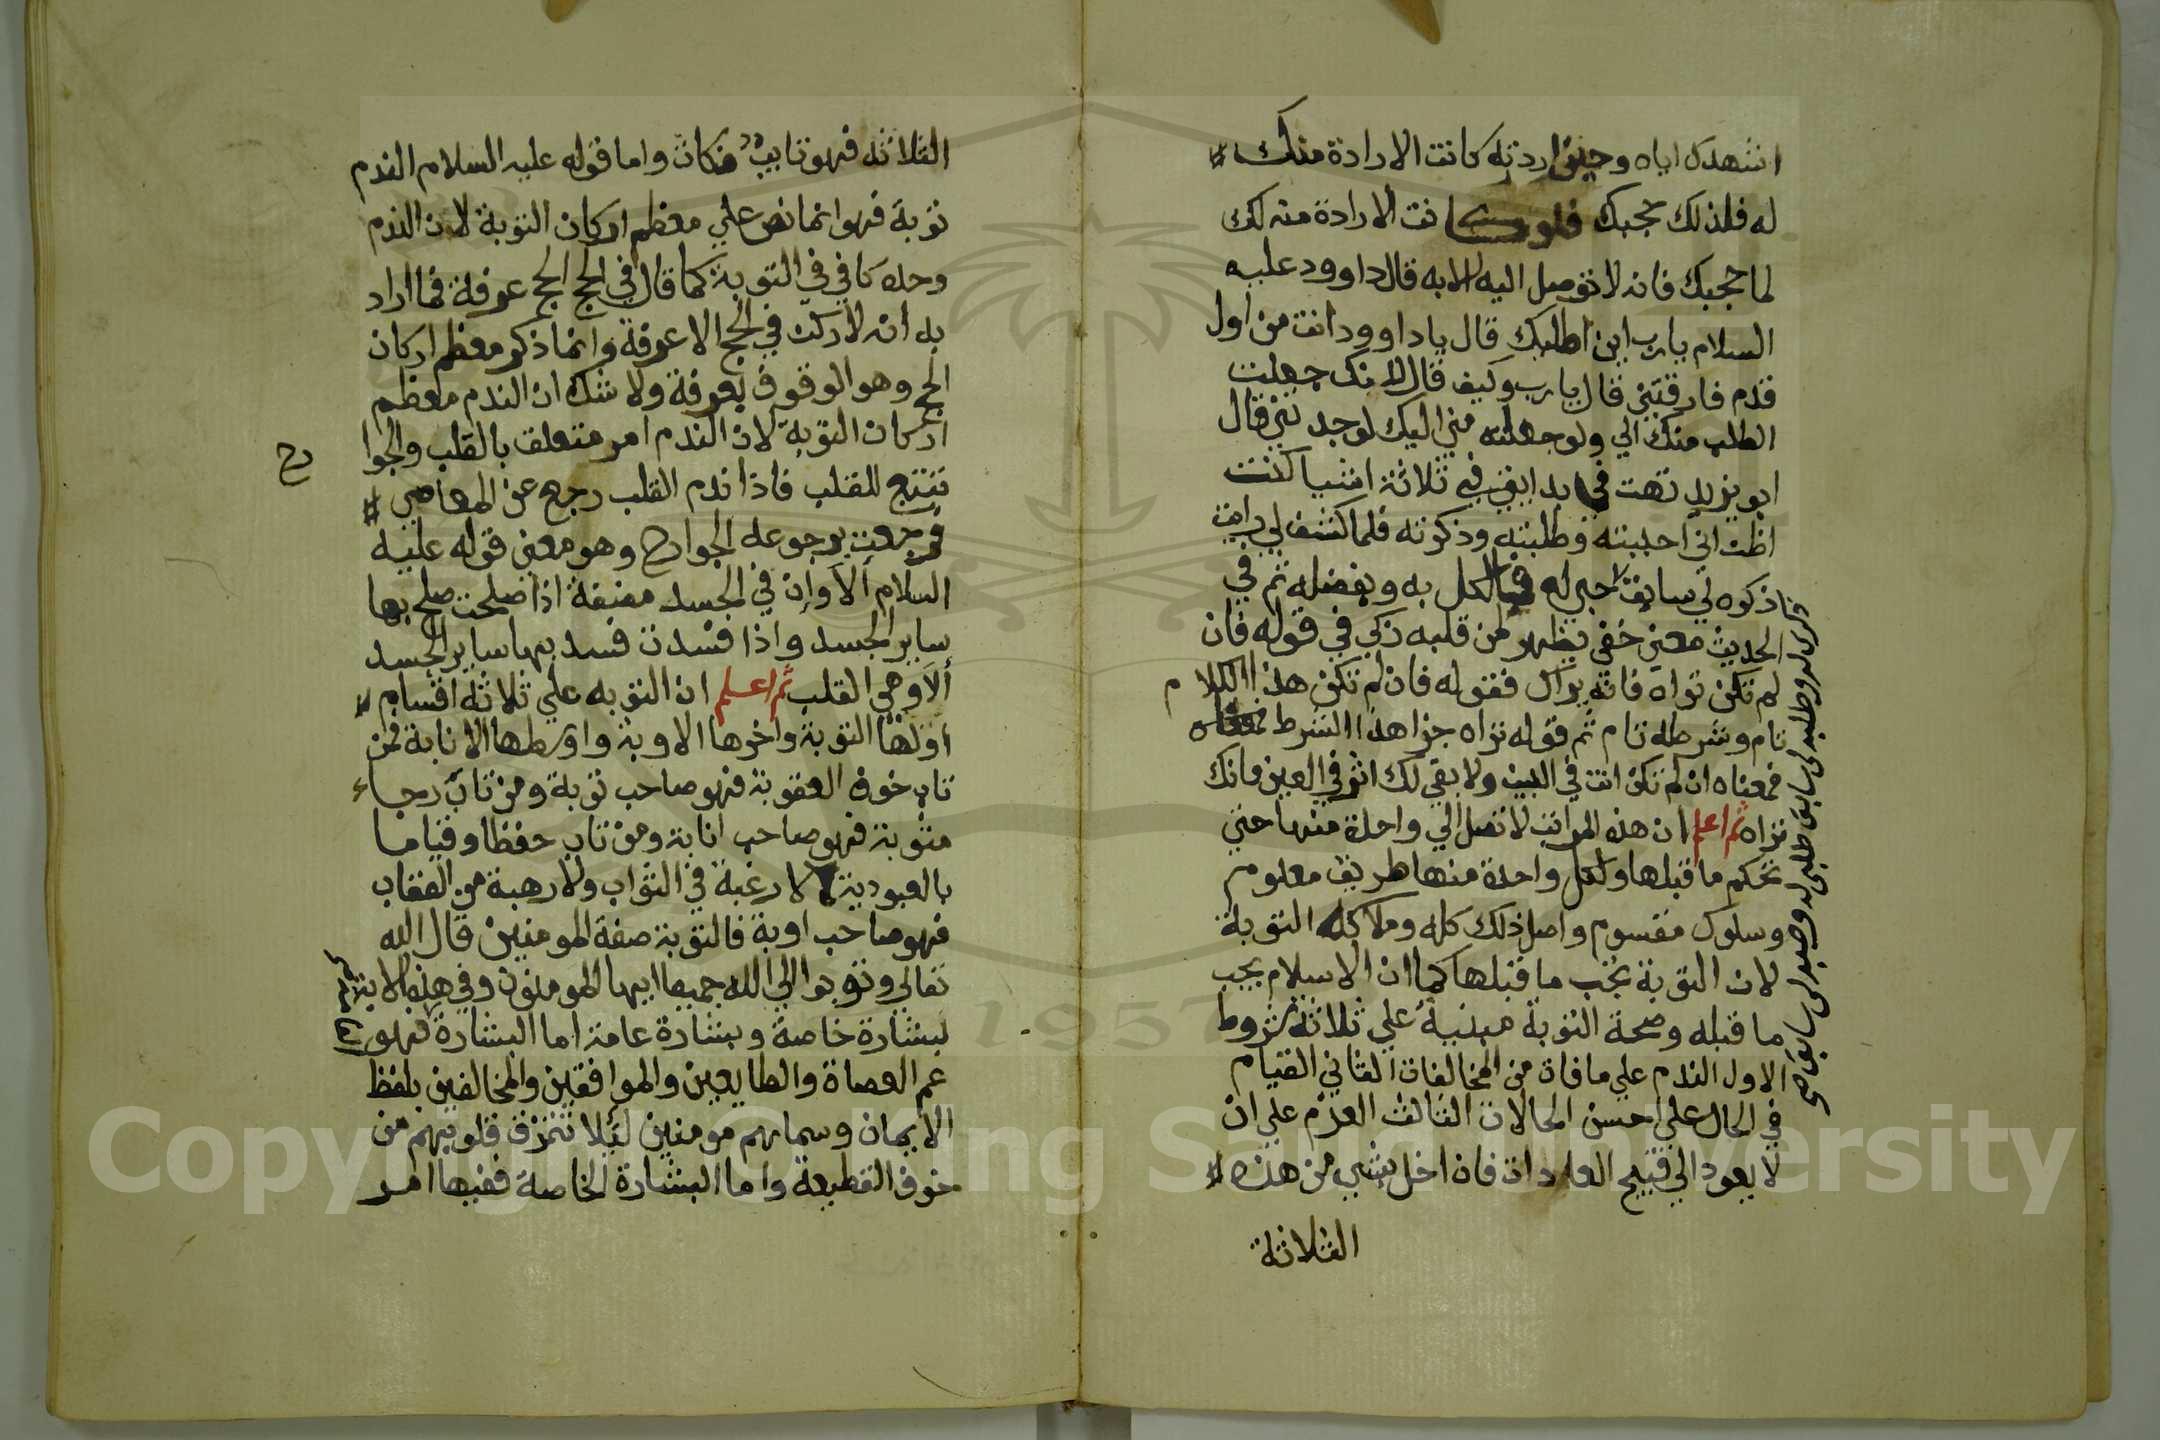 اشهدك اياه وحين اردته كانت الارادة منك
له فلذلك حجبك فلو كانت الارادة منه لك
لما حجبك فانه لا توصل اليه الا به قال داوود عليه
السلام يا رب اين اطلبك قال يا داوود انت من اول
قدم فارقتني قال يا رب وكيف قال لانك جعلت
الطلب منك الي ولو جعلته مني اليك لوجدتني قال
ابو يزيد تهت في بدايتي في ثلاثة اشيا كنت
اظن اني احببته وطلبته وذكرته فلما كشف لي رايت
ذكره لي سابق حبي له فالكل به وبفضله ثم في
الحديث معني خفي يظهر لمن قلبه زكي في قوله فان
لم تكن تراه فانه يراك فقوله فان لم تكن هذا الكلام
تام وشرطه تام ثم قوله تراه جزا هذا الشرط
فمعناه ان لم تكن انت في البين ولا بقي لك اثر في العين فانك
تراه ثم اعلم ان هذه المراتب لا تصل الي واحدة منها حتي
تحكم ما قبلها ولكل واحدة منها طريق معلوم
وسلوك مقسوم واصل ذلك كله وملاكه التوبة
لان التوبة تجب ما قبلها كما ان الاسلام يجب
ما قبله وصحة التوبة مبنية علي ثلاثة شروط
الاول الندم علي ما فات من المخالفات الثاني القيام
في الحال علي احسن الحالات الثالث العزم علي ان
لا يعود الي قبيح العادات فان اخل بشي من هذه
الثلاثة
الثلاثة فهو تايب واما قوله عليه السلام الندم
توبة فهو انما نص علي معظم اركان التوبة لان الندم
وحده كافي في التوبة كما قال في الحج الحج عرفة فما اراد
به انه لا ركن في الحج الا عرفة وانما ذكر معظم اركان
الحج وهو الوقوف بعرفة ولا شك ان الندم معظم
اركان التوبة لان الندم امر متعلق بالقلب والجوا
رح
تتبع للقلب فاذا ندم القلب رجع عن المعاصي
فرجعت برجوعه الجوارح وهو معني قوله عليه
السلام الا وان في الجسد مضغة اذا صلحت صلح بها
ساير الجسد واذا فسدت فسد بها ساير الجسد
الا وهي القلب ثم اعلم ان التوبه علي ثلاثة اقسام
اولها التوبة واخرها الاوبة واوسطها الانابة فمن
تاب خوف العقوبة فهو صاحب توبة ومن تاب رجاء
مثوبة فهو صاحب انابة ومن تاب حفظا وقياما
بالعبودية لا رغبة في الثواب ولا رهبة من العقاب
فهو صاحب اوبة فالتوبة صفة المومنين قال الله
تعالي وتوبوا الي الله جميعا ايها المومنون وفي هذه الاية
بشارة خاصة وبشارة عامة اما البشارة فهو
عم العصاة والطايعين والموافقين والمخالفين بلفظ
الايمان وسماهم مومنين ليلا تتمزق قلوبهم من
خوف القطيعة واما البشارة الخاصة ففيها امر